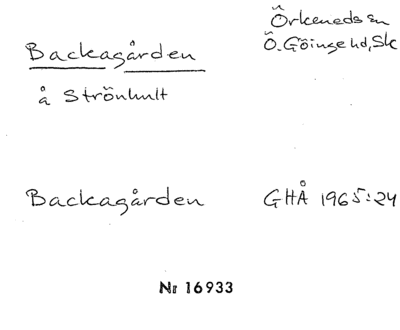 Backagården
Örkeneds sn
Ö. Göinge hd, Sk
å Strönhult
Backagården
GHÅ 1965:24
Nr 16933